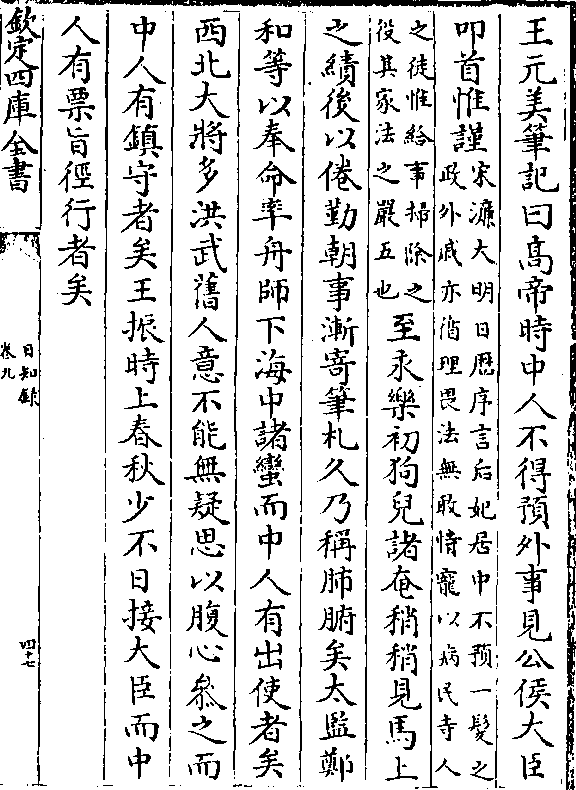 王元美筆記曰髙帝時中人不得預外事見公侯大臣
叩首惟謹宋濂大明日厯序言后妃居中不預一髮之
政外戚亦循理畏法無敢恃寵以病民寺人
之徒惟給事掃除之
役其家法之嚴五也至永樂初狗兒諸奄稍稍見馬上
之績後以倦勤朝事漸寄筆札久乃稱肺腑矣太監鄭
和等以奉命率舟師下海中諸蠻而中人有出使者矣
西北大將多洪武舊人意不能無疑思以腹心叅之而
中人有鎮守者矣王振時上春秋少不日接大臣而中
人有票旨徑行者矣
欽定四庫全書
日知錄
卷九
四十七